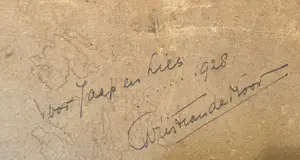 Voor Jaap en Lies
........ 1928
Christiaan de Moor